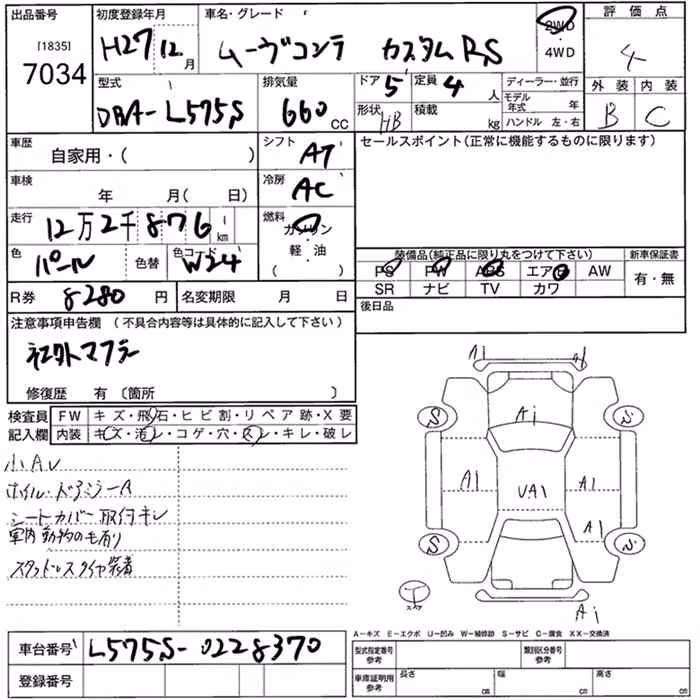 出品番号
[1835]
7034
初度登録年月
H27 12月
車名・グレード
ムーヴコンテ カスタムRS
2WD
・
4WD
評価点
4
型式
DBA-L575S
排気量
660 CC
ドア 5
定員 4 人
形状 HB
積載 kg
ディーラー・並行
モデル年式 年
ハンドル 左・右
外装 内装
B C
車歴
自家用・( )
シフト AT
車検 年 月( 日)
冷房 AC
走行 12万2千876km
燃料 ガソリン
軽・油
( )
色 パール 色替
色コード W24
R券 8280 円
名変期限 月 日
セールスポイント(正常に機能するものに限ります)
装備品(純正品に限り丸をつけて下さい)
新車保証書
PS PW ABS エアB AW
SR ナビ TV カワ
有・無
後日品
注意事項申告欄 (不具合内容等は具体的に記入して下さい)
社外マフラー
修復歴 有 (箇所 )
検査員記入欄
FW キズ・飛石・ヒビ割・リペア跡・X要
内装 キズ・汚レ・コゲ・穴・スレ・キレ・破レ
小AU
ホイル・ドアミラーA
シートカバー取付キレ
車内 動物の毛有り
スタッドレスタイヤ装着
A1
S S
A1 VA1 A1
A1
S S
T
スペア
A1
A-キズ E-エクボ U-凹み W-補修跡 S-サビ C-腐食 XX-交換済
車台番号 L575S-0228370
登録番号
型式指定番号
参考
類別区分番号
参考
車庫証明用
参考
長さ cm 幅 cm 高さ cm